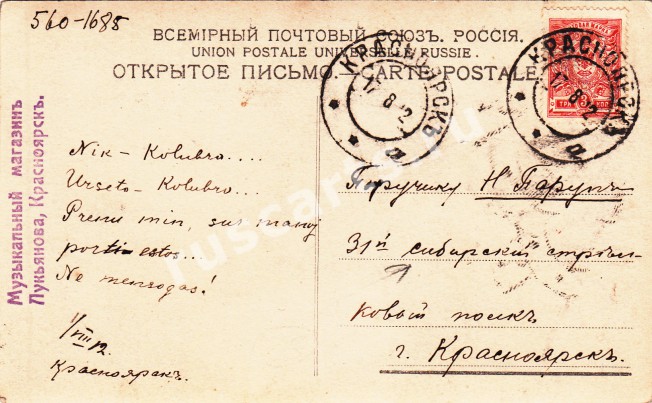 560-1685
ВСЕМІРНЫЙ ПОЧТОВЫЙ СОЮЗЪ. РОССІЯ.
UNION POSTALE UNIVERSELLE RUSSIE.
ОТКРЫТОЕ ПИСЬМО.—CARTE POSTALE.
КРАСНОЯРСКЪ
17 8 12
а
КРАСНОЯРСКЪ
17 8 12
а
ТРИ 3 КОП
Музыкальный магазинъ
Лукьянова, Красноярскъ.
Nik - Kolubro....
Urseto - Kolubro...
Prenu min, sur manoj
porti estos...
Ne mensogas!
1/VIII 12.
Красноярскъ.
Поручику Н Парупъ
31й сибирскій стрѣл-
ковый полкъ
г. Красноярскъ.
ruscards.ru